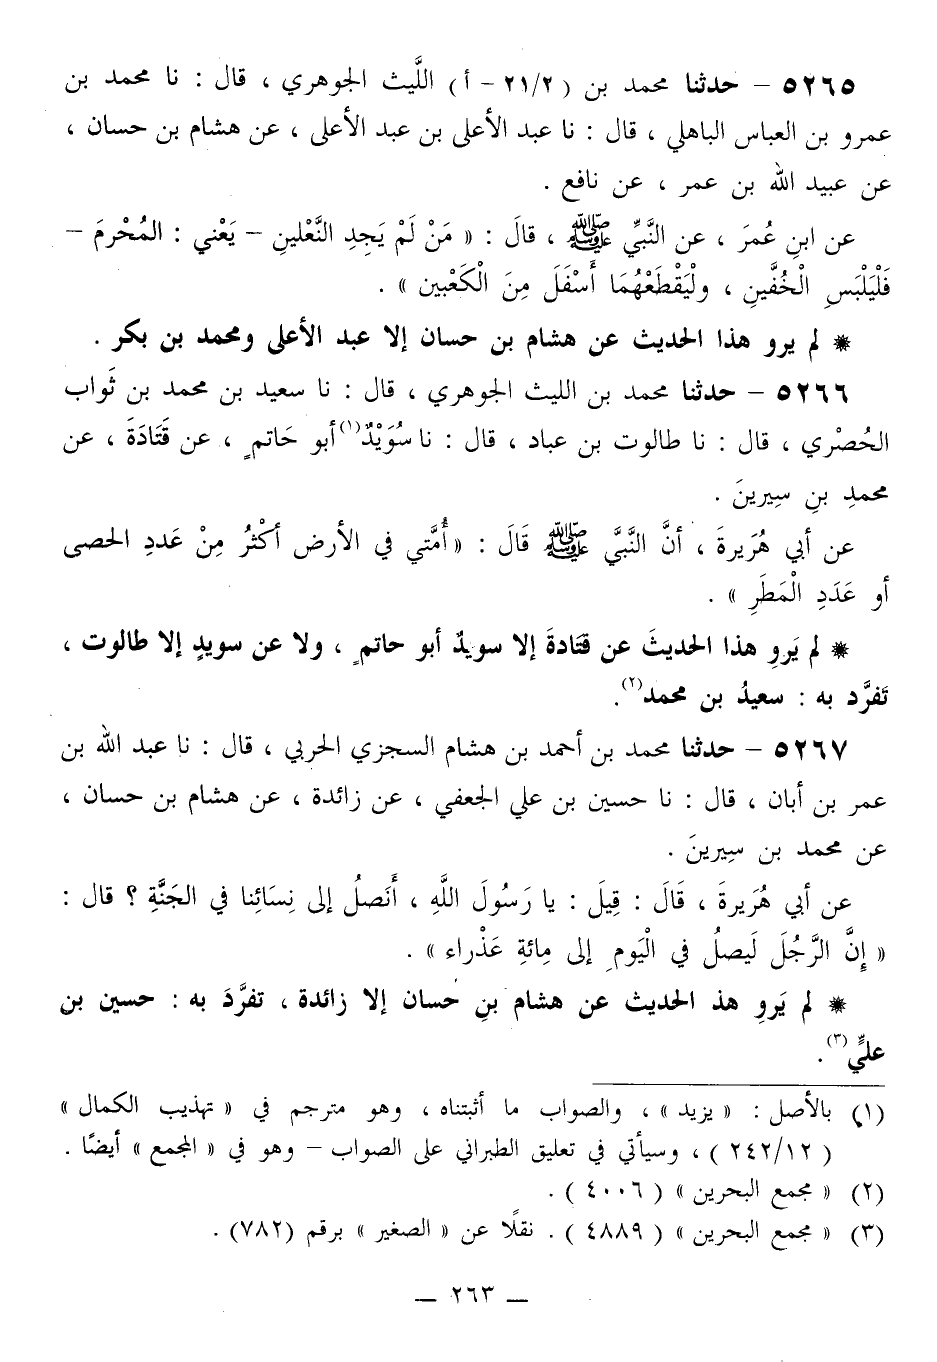 ٥٢٦٥ – حدثنا محمد بن (٢١/٢ - أ) اللَّيث الجوهري ، قال : نا محمد بن
عمرو بن العباس الباهلي ، قال : نا عبد الأعلى بن عبد الأعلى ، عن هشام بن حسان ،
عن عبيد الله بن عمر ، عن نافع .
عن ابنِ عُمرَ ، عن النَّبيِّ ﷺ ، قالَ : « مَنْ لَمْ يَجِدِ النَّعْلينِ – يَعْني : المُحْرِمَ –
فَلْيَلْبَسِ الْخُفَّينِ ، ولْيَقْطَعْهُمَا أَسْفَلَ مِنَ الْكَعْبين » .
❋ لم يرو هذا الحديث عن هشام بن حسان إلا عبد الأعلى ومحمد بن بكر .
٥٢٦٦ – حدثنا محمد بن الليث الجوهري ، قال : نا سعيد بن محمد بن ثَواب
الحُصْري ، قال : نا طالوت بن عباد ، قال : نا سُوَيْدٌ(١) أبو حَاتمٍ ، عن قَتَادَةَ ، عن
محمدِ بنِ سِيرينَ .
عن أبي هُرَيرةَ ، أنَّ النَّبيَّ ﷺ قَالَ : « أُمَّتي في الأرضِ أكْثَرُ مِنْ عَددِ الحَصى
أو عَدَدِ الْمَطَرِ » .
❋ لم يَروِ هذا الحديثَ عن قتَادةَ إلا سويدٌ أبو حاتمٍ ، ولا عن سويدٍ إلا طالوت ،
تَفرَّد به : سعيدُ بن محمد(٢).
٥٢٦٧ – حدثنا محمد بن أحمد بن هشام السجزي الحربي ، قال : نا عبد الله بن
عمر بن أبان ، قال : نا حسين بن علي الجعفي ، عن زائدة ، عن هشام بن حسان ،
عن محمد بن سِيرينَ .
عن أبي هُرَيرةَ ، قَالَ : قِيلَ : يا رَسُولَ اللَّهِ ، أَنَصلُ إلى نِسَائِنا في الجَنَّةِ ؟ قال :
« إِنَّ الرَّجُلَ لَيصلُ في الْيَومِ إلى مِائةِ عَذْراء » .
❋ لم يَروِ هذ الحديث عن هشام بنِ حسان إلا زائدة ، تفرَّدَ به : حسين بن
عليٍّ(٣).
(١) بالأصل : « يزيد » ، والصواب ما أثبتناه ، وهو مترجم في « تهذيب الكمال »
( ٢٤٢/١٢ ) ، وسيأتي في تعليق الطبراني على الصواب – وهو في « المجمع » أيضًا .
(٢) « مجمع البحرين » ( ٤٠٠٦ ) .
(٣) « مجمع البحرين » ( ٤٨٨٩ ) . نقلًا عن « الصغير » برقم (٧٨٢) .
— ٢٦٣ —